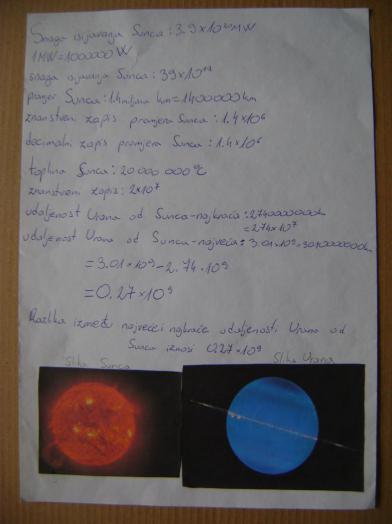 Snaga isijavanja Sunca: 3.9×10²⁰MW
1MW=1000000W
snaga isijavanja Sunca: 39×10¹⁹
promjer Sunca: 1.4milijuna km=1400000km
znanstveni zapis promjera Sunca: 1.4×10⁶
decimalni zapis promjera Sunca: 1.4×10⁶
toplina Sunca: 20 000 000 °C
znanstveni zapis: 2×10⁷
udaljenost Urana od Sunca-najkraća: 2740000000
=274×10⁷
udaljenost Urana od Sunca-najveća: 3.01×10⁹=3010000000
=3.01×10⁹-2.74·10⁹
=0.27×10⁹
Razlika između najveće i najkraće udaljenosti Urana od
Sunca iznosi 0.27×10⁹
Slika Sunca Slika Urana